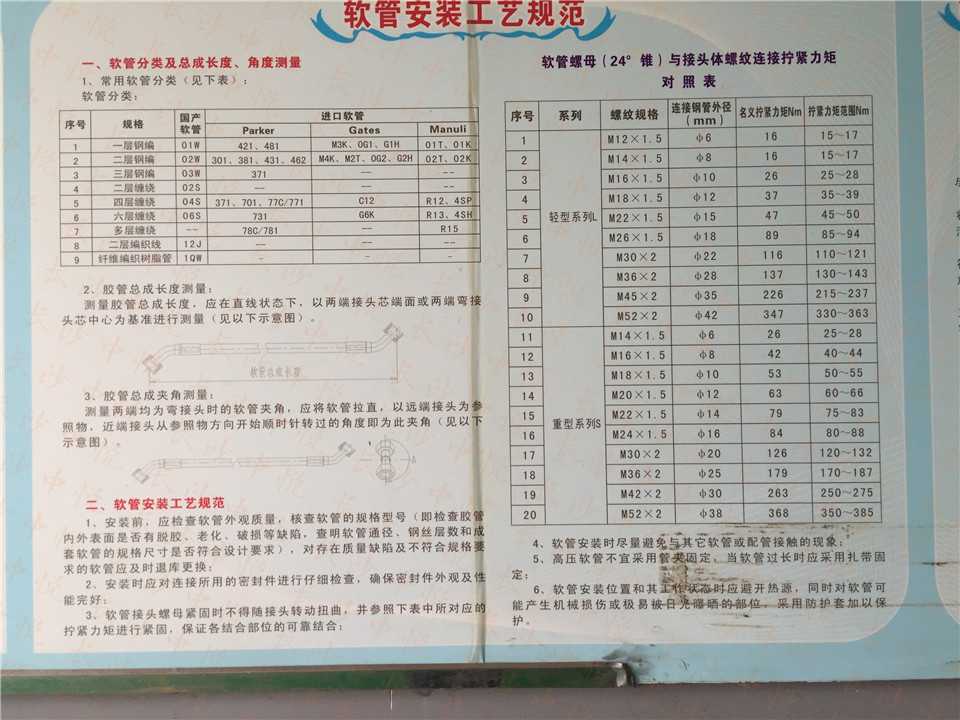 软管安装工艺规范
一、软管分类及总成长度、角度测量
1、常用软管分类（见下表）：
软管分类：
序号 规格 国产软管 进口软管
Parker Gates Manuli
1 一层钢编 01W 421、481 M3K、OG1、G1H 01T、01K
2 二层钢编 02W 301、381、431、462 M4K、M2T、OG2、G2H 02T、02K
3 三层钢编 03W 371 -- --
4 二层缠绕 02S -- -- --
5 四层缠绕 04S 371、701、77C/771 C12 R12、4SP
6 六层缠绕 06S 731 G6K R13、4SH
7 多层缠绕 -- 78C/781 R15
8 二层编织线 12J -- -- --
9 纤维编织树脂管 1QW - - -
2、胶管总成长度测量：
测量胶管总成长度，应在直线状态下，以两端接头芯端面或两端弯接
头芯中心为基准进行测量（见以下示意图）。
软管总成长度
3、胶管总成夹角测量：
测量两端均为弯接头时的软管夹角，应将软管拉直，以远端接头为参
照物，近端接头从参照物方向开始顺时针转过的角度即为此夹角（见以下
示意图）。
二、软管安装工艺规范
1、安装前，应检查软管外观质量，核查软管的规格型号（即检查胶管
内外表面是否有脱胶、老化、破损等缺陷，查明软管通径、钢丝层数和成
套软管的规格尺寸是否符合设计要求），对存在质量缺陷及不符合规格要
求的软管应及时退库更换；
2、安装时应对连接所用的密封件进行仔细检查，确保密封件外观及性
能完好；
3、软管接头螺母紧固时不得随接头转动扭曲，并参照下表中所对应的
拧紧力矩进行紧固，保证各结合部位的可靠结合；
软管螺母（24°锥）与接头体螺纹连接拧紧力矩
对照表
序号 系列 螺纹规格 连接钢管外径（mm） 名义拧紧力矩Nm 拧紧力矩范围Nm
1 M12×1.5 φ6 16 15～17
2 M14×1.5 φ8 16 15～17
3 M16×1.5 φ10 26 25～28
4 M18×1.5 φ12 37 35～39
5 轻型系列L M22×1.5 φ15 47 45～50
6 M26×1.5 φ18 89 85～94
7 M30×2 φ22 116 110～121
8 M36×2 φ28 137 130～143
9 M45×2 φ35 226 215～237
10 M52×2 φ42 347 330～363
11 M14×1.5 φ6 26 25～28
12 M16×1.5 φ8 42 40～44
13 M18×1.5 φ10 53 50～55
14 M20×1.5 φ12 63 60～66
15 重型系列S M22×1.5 φ14 79 75～83
16 M24×1.5 φ16 84 80～88
17 M30×2 φ20 126 120～132
18 M36×2 φ25 179 170～187
19 M42×2 φ30 263 250～275
20 M52×2 φ38 368 350～385
4、软管安装时尽量避免与其它软管或配管接触的现象；
5、高压软管不宜采用管夹固定，当软管过长时应采用扎带固
定；
6、软管安装位置和其工作状态时应避开热源，同时对软管可
能产生机械损伤或极易被日光曝晒的部位，采用防护套加以保
护。